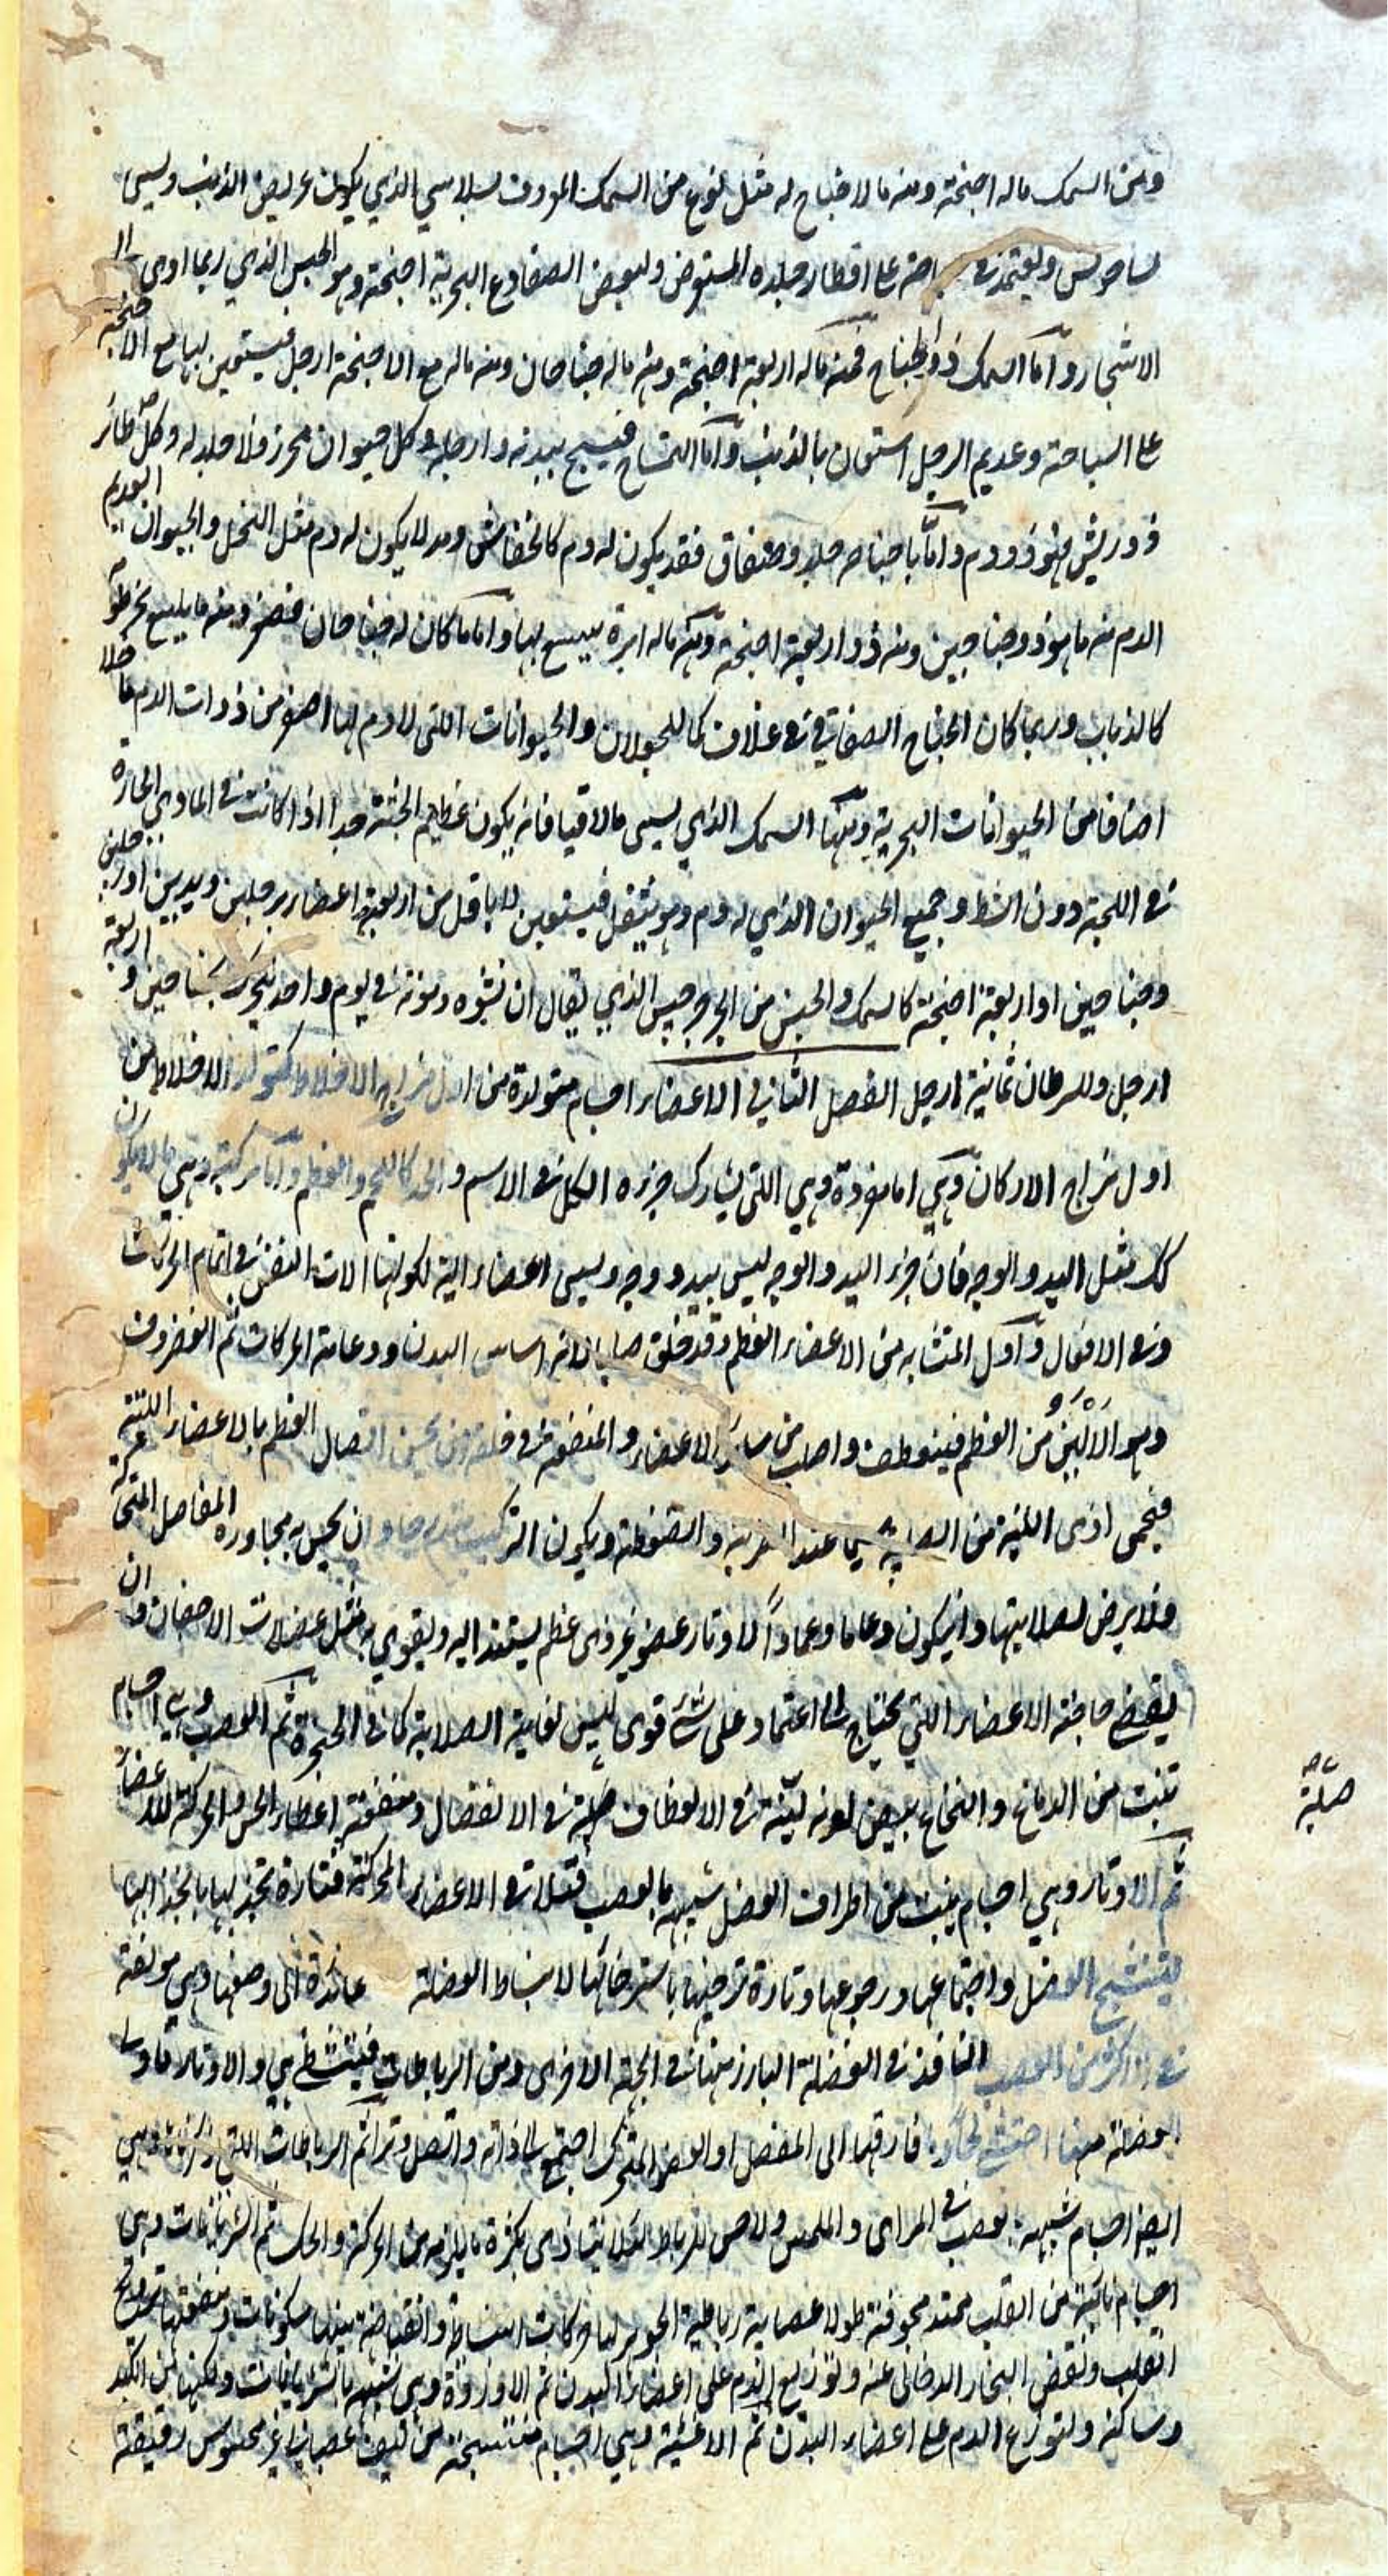 ومن السمك ماله اجنحة ومنه مالا جناح له مثل نوع من السمك المعروف بسلاسي الذي يكون عريض الذنب ويسمى
ويعتمد في على اقطار جلده المستعرض ولبعض الضفادع البحرية اجنحة وهو الجنس الذي ربما اوى الى
الاشجار واما السمك ذو الجناح فمنه ماله اربعة اجنحة ومنه ماله جناحان ومنه ماله مع الاجنحة ارجل فيستعين بها مع الاجنحة
على السباحة وعديم الرجل استعان بالذنب واما التمساح فيسبح بيديه وارجله وكل حيوان محرز فلا جلد له وكل طائر
ذو ريش فهو ذو دم واما ما جناحه جلد وصفاق فقد يكون له دم كالخفاش وقد لا يكون له دم مثل النحل والحيوان العديم
الدم منه ما هو ذو جناحين ومنه ذو اربعة اجنحة ومنه ماله ابرة يلسع بها واما ما كان له جناحان فصغير ومنه ما يلسع بخرطومه
كالذباب وربما كان الجناح الصفاقي في غلاف كما للجعلان والحيوانات اللتي لا دم لها اصغر من ذوات الدم ما خلا
اصنافا من الحيوانات البحرية ومنها السمك الذي يسمى مالاقيا فانه يكون عظيم الجثة جدا اذا كانت في المآوى الحارة
في اللجة دون الشط وجميع الحيوان الذي له دم وهو ينتقل فيستعين لا باقل من اربعة اعضاء برجلين ويدين او رجلين
وجناحين او اربعة اجنحة كالسمك والجنس من الذي يقال ان نشوه وموته في يوم واحد يتحرك بجناحين واربعة
ارجل وللسرطان ثمانية ارجل الفصل الثاني في الاعضاء اجسام متولدة من اول مزاج الاخلاط كتولد الاخلاط من
اول مزاج الاركان وهي اما مفردة وهي اللتي يشارك جزءه الكل في الاسم والحد كاللحم والعظم واما مركبة وهي مالا يكون
كك مثل اليد والوجه فان جزء اليد والوجه ليس بيد ووجه ويسمى اعضاء آلية لكونها آلات النفس في اتمام الحركات
وفي الافعال واول المتشابه من الاعضاء العظم وقد خلق صلبا لانه اساس البدن ودعامة الحركات ثم الغضروف
وهو الألين من العظم فينعطف واصلب من سائر الاعضاء والمنفعة في خلقه ان يحسن اتصال العظم بالاعضاء اللينة
فيحمى اذى اللينة من الصلبة سيما عند الضربة والضغطة ويكون التركيب وان يحسن به مجاورة المفاصل المتحركة
فلا يرض لصلابتها وان يكون دعاما وعمادا لاوتار عضو غير ذي عظم يستند اليه ويقوي به مثل عضلات الاجفان وان
يقضي حاجة الاعضاء اللتي تحتاج الى اعتماد على شئ قوي ليس بغاية الصلابة كما في الحنجرة ثم العصب وهي اجسام
تنبت من الدماغ والنخاع بيض لونه لينة في الانعطاف صلبة في الانفصال ومنفعته اعطاء الحس والحركة للاعضاء
صلبة
ثم الاوتار وهي اجسام ينبت من اطراف العضل شبيهة بالعصب فتلاقي الاعضاء المتحركة فتارة تجذبها بانجذابها
لتشنج العضل واجتماعها ورجوعها وتارة ترخيها باسترخائها لانبساط العضلة عائدة الى وضعها وهي مؤلفة
في الاكثر من العصب النافذ في العضلة البارز منها في الجهة الاخرى ومن الرباطات فيتشظى هي والاوتار
العضلة منها احتشى لحما فارقها الى المفصل او العضو المتحرك اجتمع الى ذاته واتصل وترا ثم الرباطات اللتي ذكرناها وهي
ايضا اجسام شبيهة بعصب في المراى والملمس ولا حس للرباط لئلا يتاذى بكثرة ما يلزمه من الحركة والحك ثم الشريانات وهي
اجسام نابتة من القلب ممتد مجوفة طولا عصبانية رباطية الجوهر لها حركات انبساط وانقباضة بينها سكونات ومنفعتها ترويح
القلب ونفض البخار الدخاني عنه وتوزيع الدم على اعضاء البدن ثم الاوردة وهي شبيهة بالشريانات ولكنها من الكبد
وساكنة ولتوزع الدم على اعضاء البدن ثم الاغشية وهي اجسام منتسجة من ليف عصباني غير محسوس رقيقة